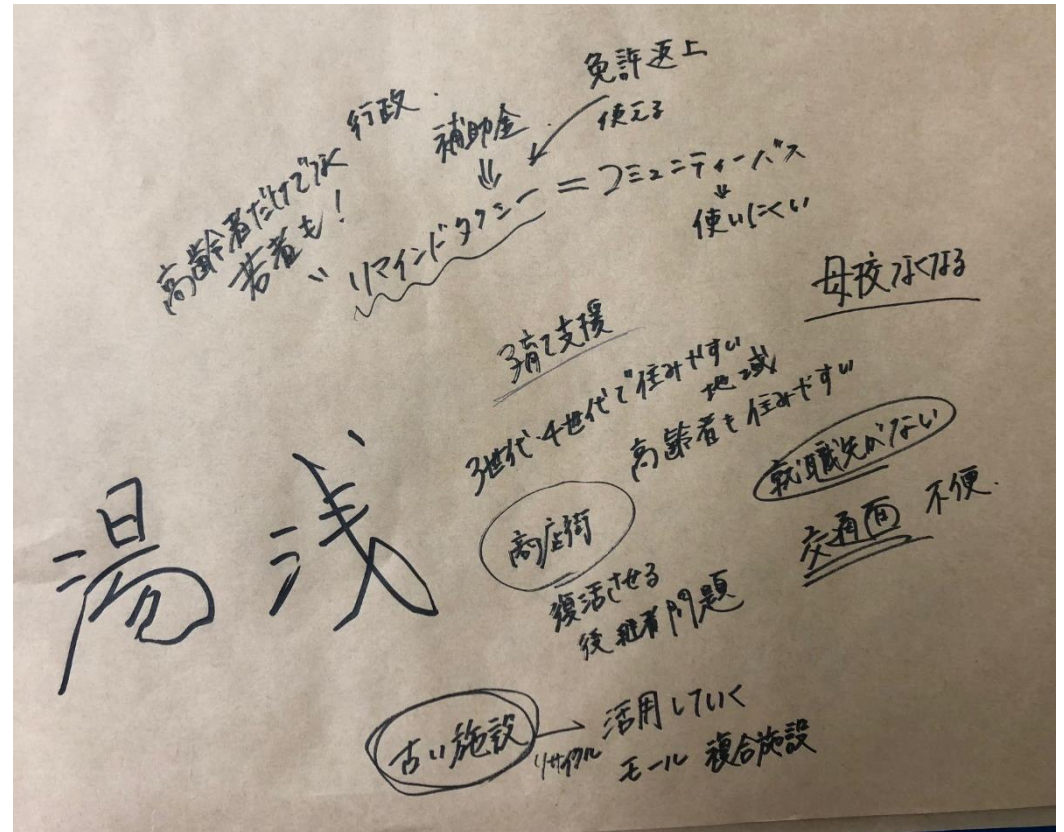 免許返上
使える
行政
補助金
⇓
高齢者だけでなく
若者も!
〃リマインドタクシー=コミュニティーバス
↓
使いにくい
母校なくなる
子育て支援
3世代・4世代で住みやすい
地域
高齢者も住みやすい
就職先がない
交通面 不便.
商店街
復活させる
後継者問題
湯浅
古い施設→活用していく
リサイクル
モール 複合施設